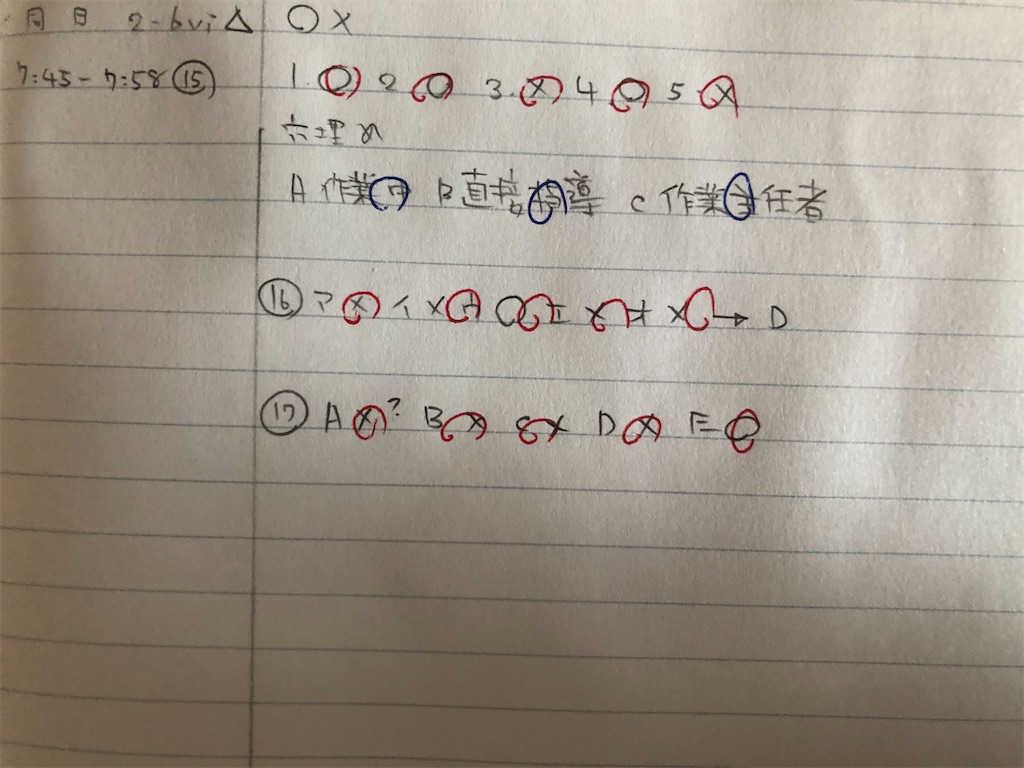 月 日 2-bvi△ ○×
7:45-7:58 ⑮ 1.○ 2○ 3.× 4○ 5×
A 作業中 B直接指導 C 作業主任者
⑯ ア× イ× ウ○ エ× オ× → D
⑰ A×? B× C× D× E○